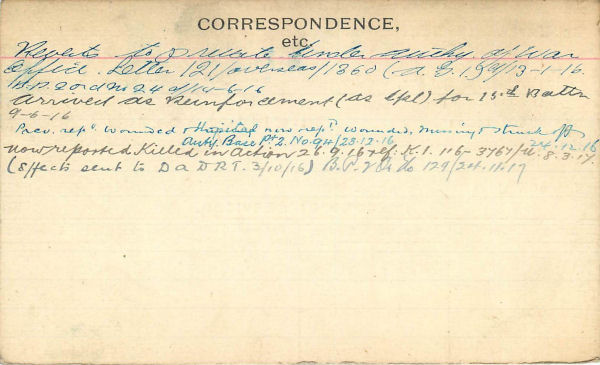 CORRESPONDENCE,
etc.
Reverts to private under authy. of War
Office. Letter 121/overseas/1360 (A.G.1) 13-1-16.
B.P.2 Ord No 24 d/14-6-16
Arrived as Reinforcement (as Cpl) for 15th Battn
9-6-16
Prev. repd. wounded & Hospital now repd. wounded, missing & struck off
Auth. Base Pt 2. No. 94/23-12-16 24-12-16
now reported Killed in Action 26.9.16 ref. K.1. 116-3767/ 8.3.17.
(effects sent to D a D R T. 3/10/16) B.P. 2 129/24.11.17